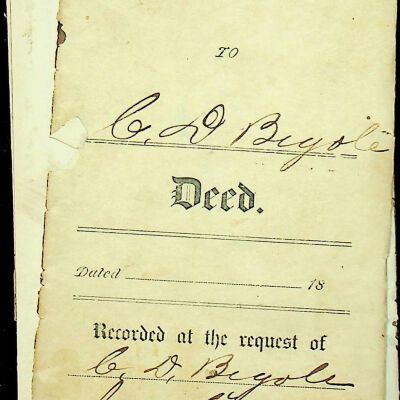 TO
C. D Bigole
Deed.
Dated 18
Recorded at the request of
C. D. Bigole